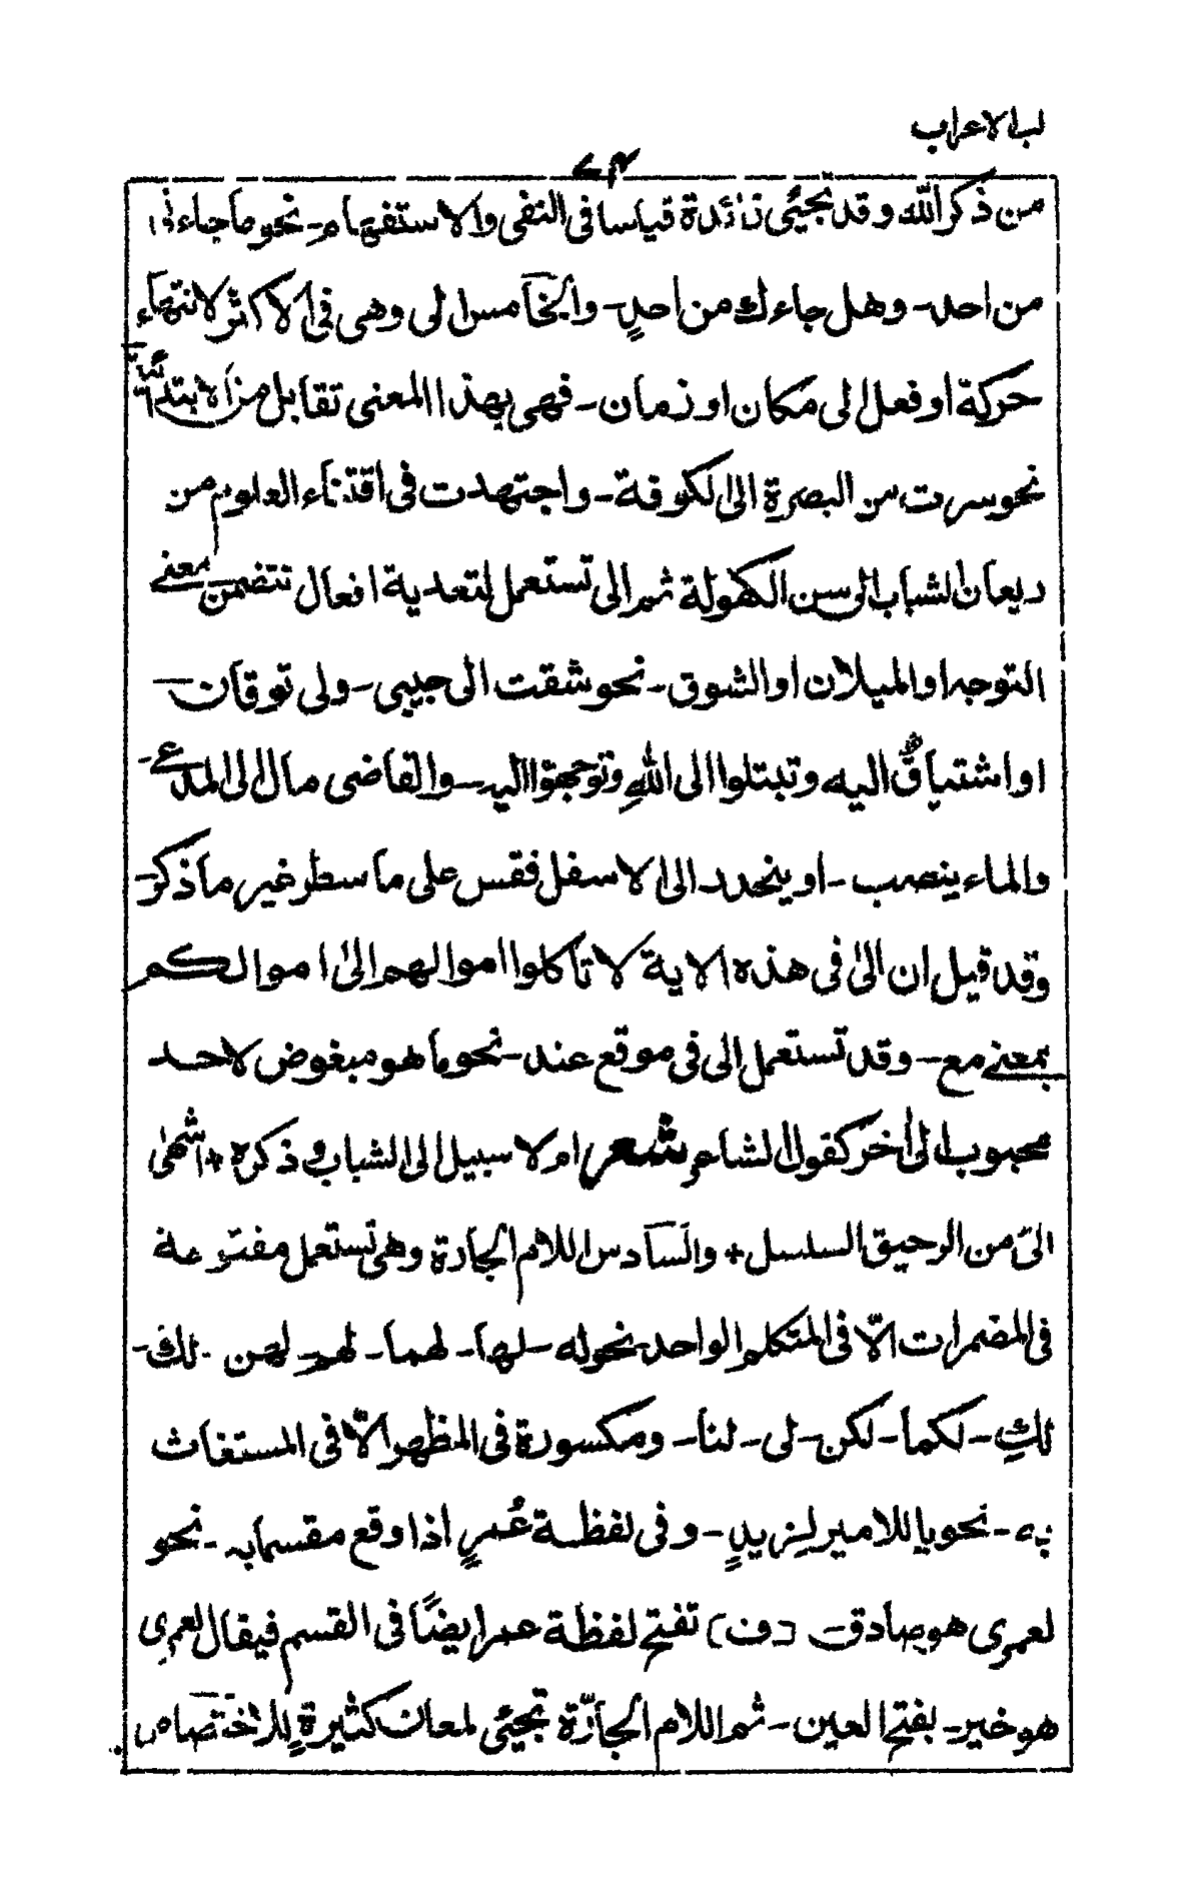 لب الاعراب
٤٧
من ذكر الله وقد تجيئ زائدة قياسا فى النفى والاستفهام - نحو ما جاءنى
من احد - وهل جاءك من احدٍ - والخامس الى وهى فى الاكثر لانتهاء
حركة او فعل الى مكان او زمان - فهى بهذا المعنى تقابل من الابتدائية
نحو سرت من البصرة الى الكوفة - واجتهدت فى اقتناء العلوم من
ريعان الشباب الى سن الكهولة ثم الى تستعمل لتعدية افعال تتضمن معنے
التوجه او الميلان او الشوق - نحو شقت الى حبيبى - ولى توقان
او اشتياقٌ اليه وتبتلوا الى اللهِ وتوجهوا اليه - والقاضى مال الى المدعے -
والماء ينصب - او ينحدر الى الاسفل فقس على ما سطر غير ما ذكر -
وقد قيل ان الىٰ فى هذه الاية لا تأكلوا اموالهم الىٰ اموالكم
بمعنے مع - وقد تستعمل الى فى موقع عند - نحو ما هو مبغوض لاحد
محبوب الى اٰخر كقول الشاعر شعر ام لا سبيل الى الشباب وذكره + اشهىٰ
الىّ من الرحيق السلسل + والسادس اللام الجارة وهى تستعمل مفتوحة
فى المضمرات الّا فى المتكلم الواحد نحو له - لها - لهما - لهم - لهن - لك -
لكِ - لكما - لكن - لى - لنا - ومكسورة فى المظهر الّا فى المستغاث
به - نحو يا للامير لِزيدٍ - وفى لفظة عُمرٍ اذا وقع مقسما به - نحو
لعمرى هو صادق (ف) تفتح لفظة عمر ايضًا فى القسم فيقال لعمرى
هو خير - بفتح العين - ثم اللام الجارّة تجيئ لمعان كثيرةٍ للاختصاص